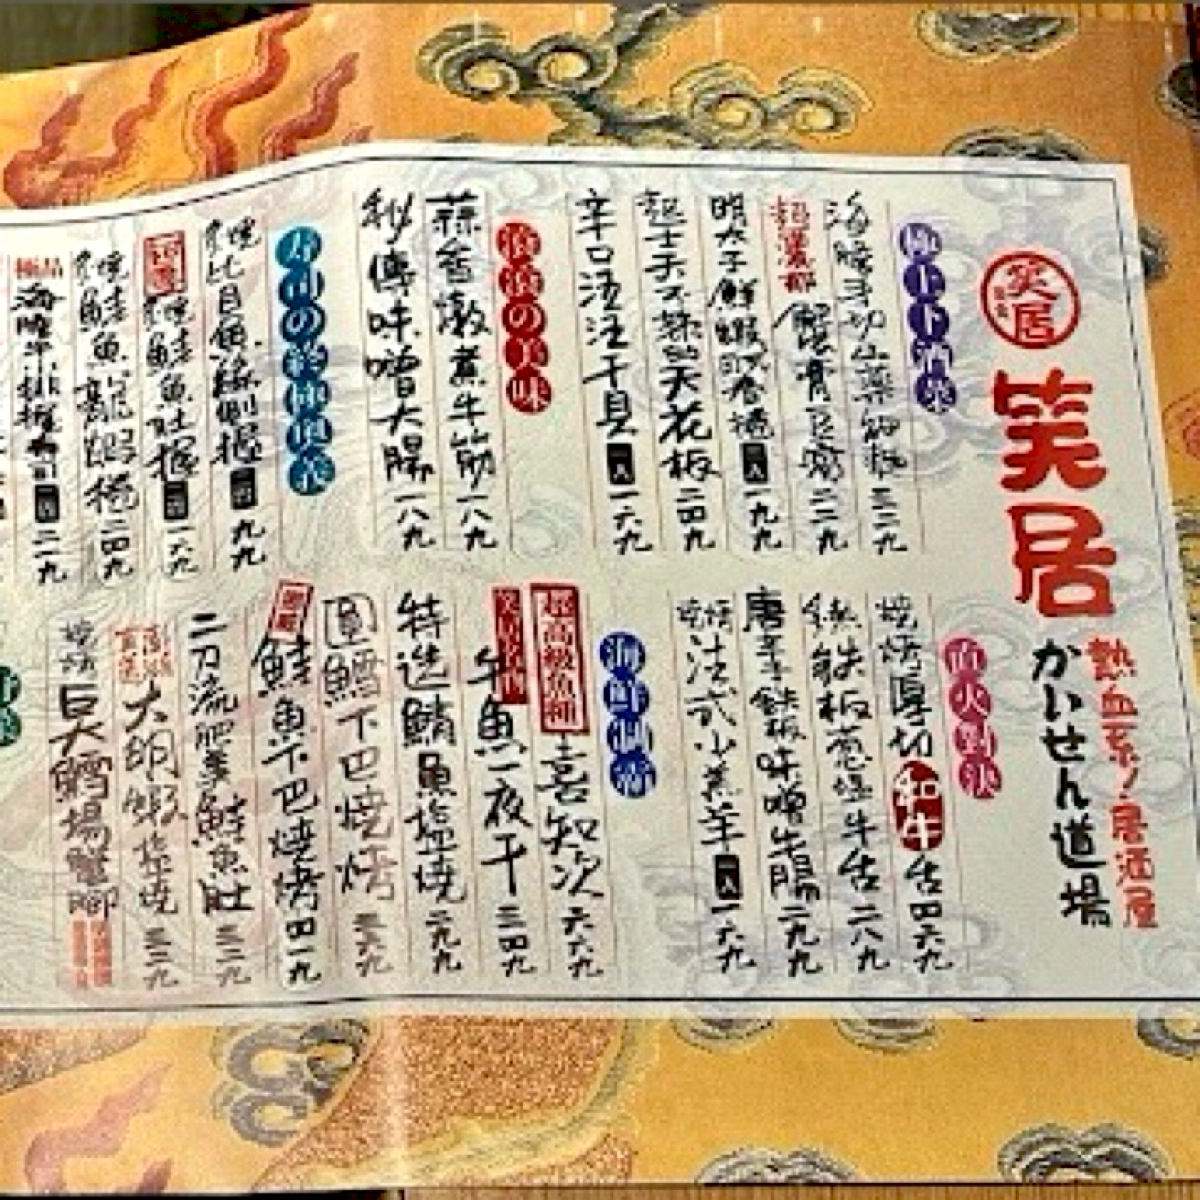 笑居
笑居
熱血系ノ居酒屋
かいせん道場
極上下酒菜
海膽手切山藥細麵 三二九
超濃郁 蟹膏豆腐 二二九
明太子鮮蝦 捲 一九九
起士 天花板 二四九
辛口 干貝 一六九
直火對決
燒烤厚切和牛舌 四六九
鐵板蔥鹽牛舌 二八九
唐辛子鐵板味噌牛腸 二九九
燒烤法式小羔羊 一六九
の美味
蒜香燉煮牛筋 一八九
秘傳味噌大腸 一八九
海鮮
超高級魚種 喜知次 六六九
笑居名物 魚一夜干 三四九
特選鯖魚塩燒 二九九
圓鱈下巴燒烤 三六九
鮭魚下巴燒烤 四一九
二刀流肥美鮭魚肚 三二九
大明蝦塩燒 三三九
燒烤巨大鱈場蟹腳
寿司の
炙燒比目魚緣側握 九九
炙燒鮭魚肚握 一六九
炙燒鮭魚龍蝦捲 二四九
極品 海膽牛排握寿司 二一九